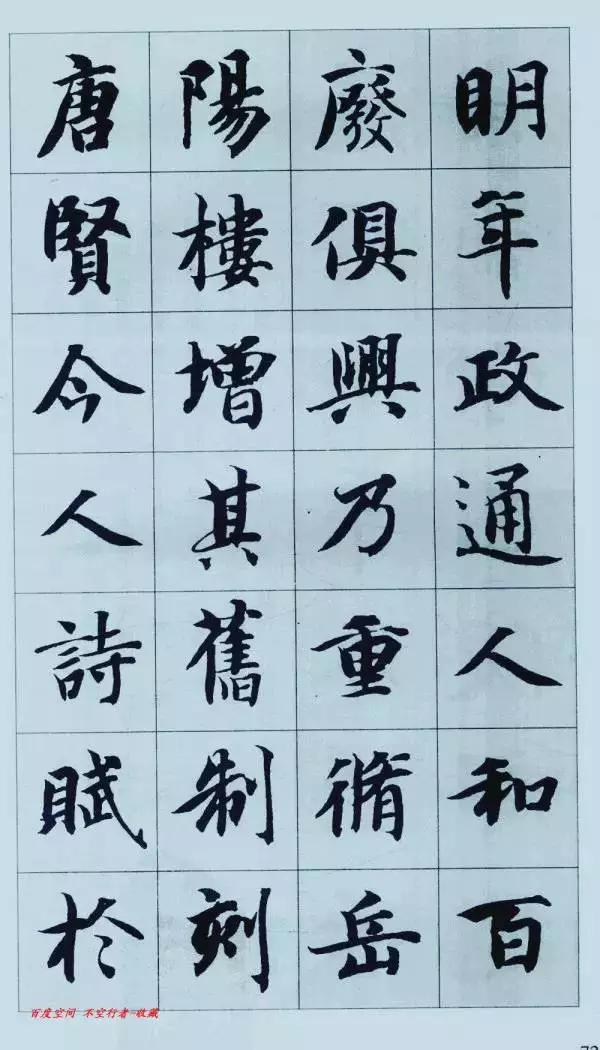 明年政通人和百
廢俱興乃重脩岳
陽樓增其舊制刻
唐賢今人詩賦於
百度空间 不空行者-收藏